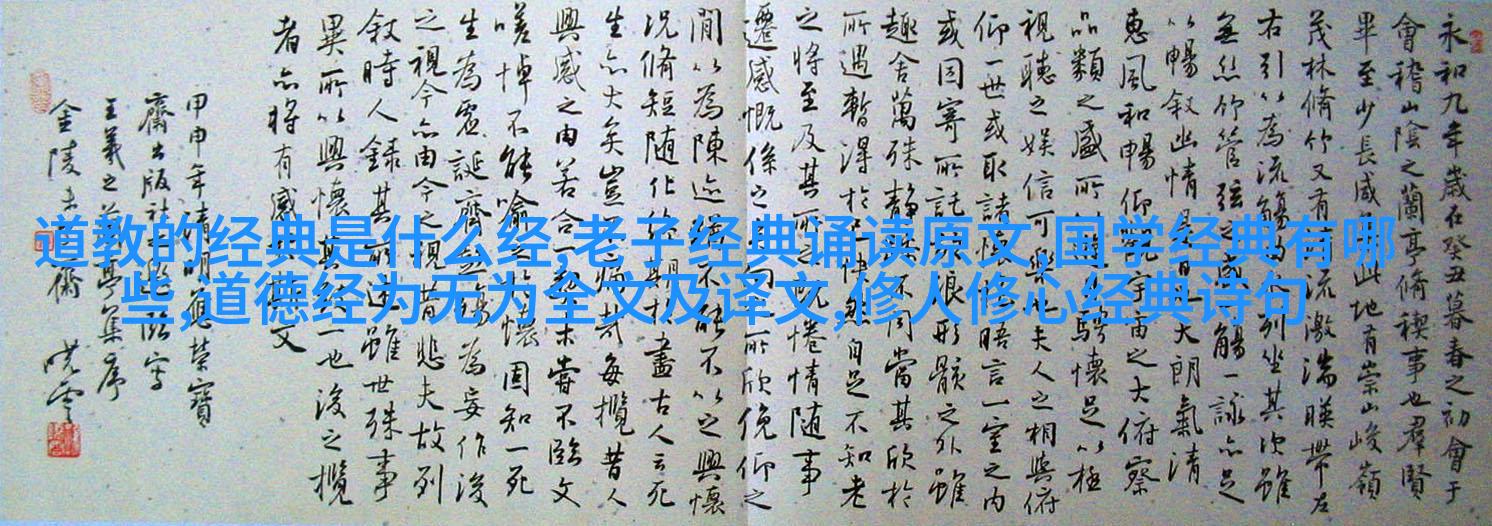 道教的经典是什么经,老子经典诵读原文,国学经典有哪
些,道德经为无为全文及译文,修人修心经典诗句
永和九年歲在癸丑暮春之初會于
會稽山陰之蘭亭脩稧事也羣賢
畢至少長咸此地有崇山峻嶺
茂林脩竹又有流激湍暎帶左
右引以為流觴列坐其次雖
無絲竹管弦之盛觴一詠亦足
以暢叙幽情是日天朗氣清
惠風和暢仰觀宇宙之大俯察
品類之盛所騁懷足以極
視聽之娛信可樂夫人之相與俯
仰一世或取諸懷悟言一室之内
或因寄所託浪形骸之外雖
趣舍萬殊静不同當其欣於
所遇暫得於快然自足不知老
之將至及其所之惓情隨事
遷感慨係之所欣俛仰之
間以為陳迹不能不以之興懷
況脩短随化終期盡古人云死
生亦大矣豈哉每攬昔人
興感之由若合一未嘗不臨文
嗟悼不能喻懷固知一死
生為虛誕齊殤為妄作後
之視今亦由今之視昔悲夫故列
叙時人録其所述雖世殊事
異所以興懷其一也後之攬
者亦將有感文
甲申年清明應榮寶
齋出版社臨寫
王羲之蘭亭集序
金陵齋